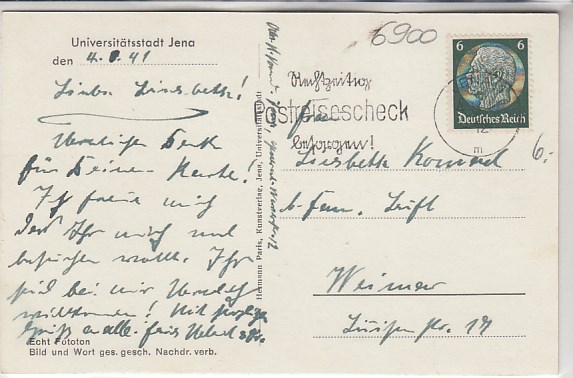 Universitätsstadt Jena
den 4.8.41
Liebe Liesbeth!
Herzlichen Dank
für Deine Karte!
Ich freue mich
daß Ihr mich mal
besuchen wollt. Ihr
seid bei mir herzlich
willkommen! Mit
Gruß an alle
Echt Fototon
Bild und Wort ges. gesch. Nachdr. verb.
Hermann Paris, Kunstverlag, Jena, Universitätsstadt
6900
Rechtzeitig
Postreisescheck
besorgen!
6 6
Deutsches Reich
12
m
6.-
Frau
Liesbeth Konrad
b. Fam.
Weimar
Str. 17